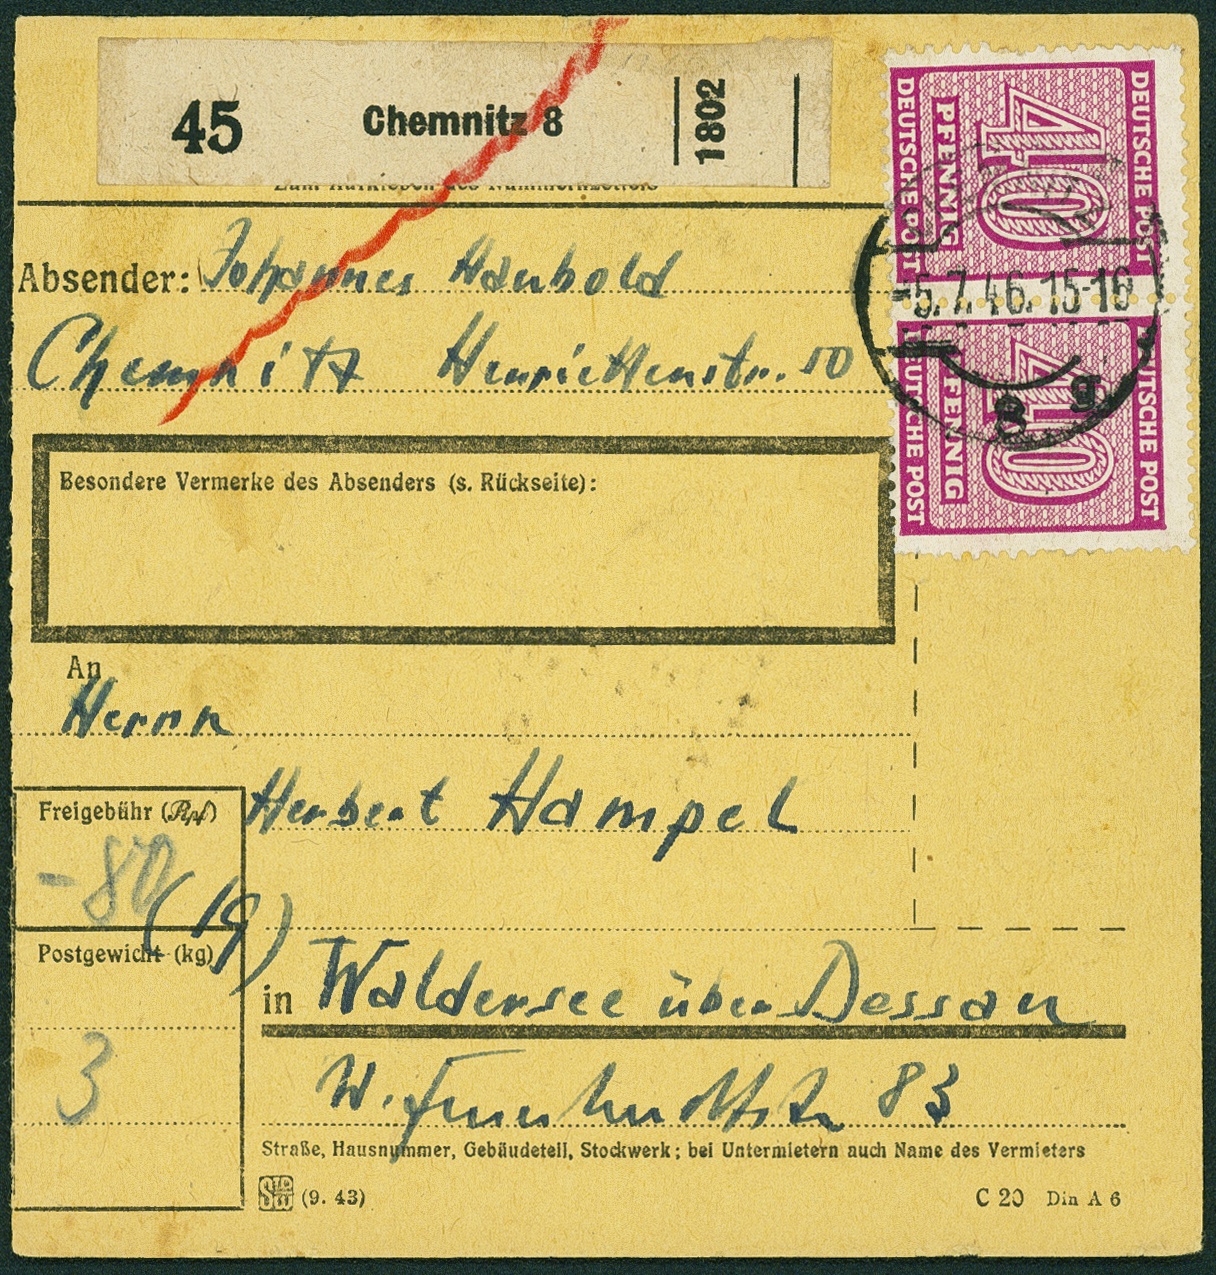 45 Chemnitz 8 1802
Zum Aufkleben des Nummernzettels
DEUTSCHE POST
40
PFENNIG
DEUTSCHE POST
Absender: Johannes Haubold
-5.7.46.15-16
Chemnitz Henriettenstr. 50
8 g
DEUTSCHE POST
40
PFENNIG
DEUTSCHE POST
Besondere Vermerke des Absenders (s. Rückseite):
An
Herrn
Herbert Hampel
Freigebühr (Rpf)
-80
(19)
Postgewicht (kg)
in Waldersee über Dessau
3
W. 83
Straße, Hausnummer, Gebäudeteil, Stockwerk; bei Untermietern auch Name des Vermieters
(9. 43) C 20 Din A 6